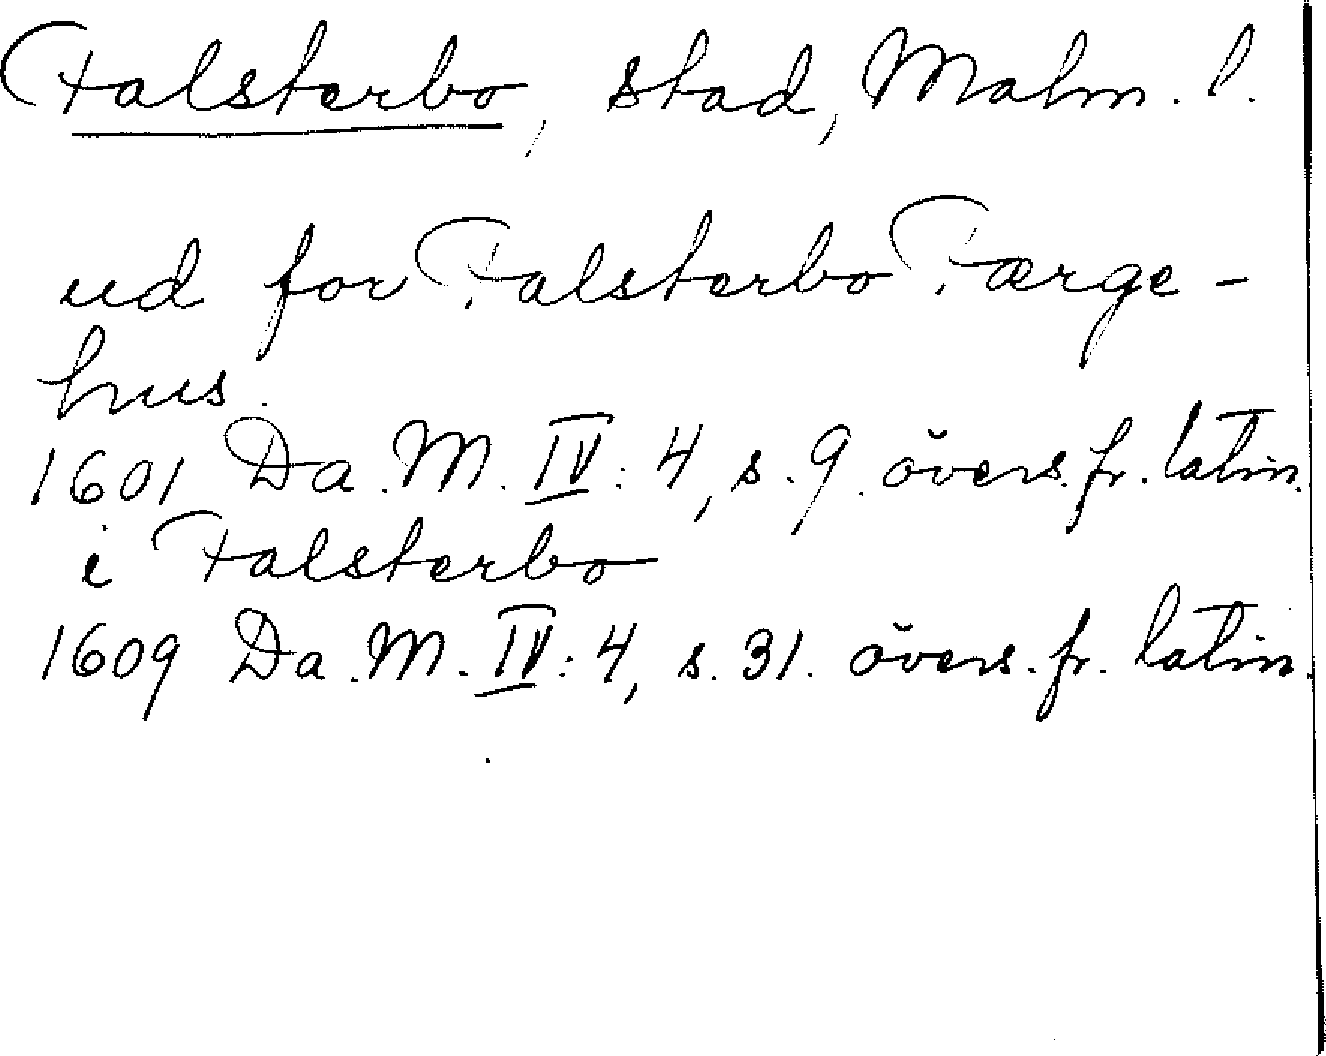 Falsterbo, stad, Malm. l.
ud for Falsterbo Færge-
hus.
1601 Da. M. IV: 4, s. 9. övers. fr. latin.
i Falsterbo
1609 Da. M. IV: 4, s. 31. övers. fr. latin.